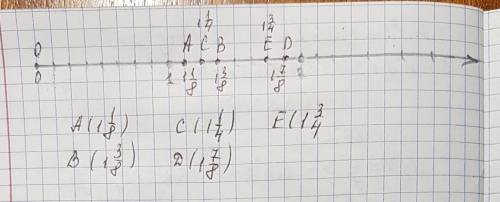 1 1/4 1 3/4
0 A C B E D
0 1 1 1/8 1 3/8 1 7/8 2
A(1 1/8) C(1 1/4) E(1 3/4
B(1 3/8) D(1 7/8)